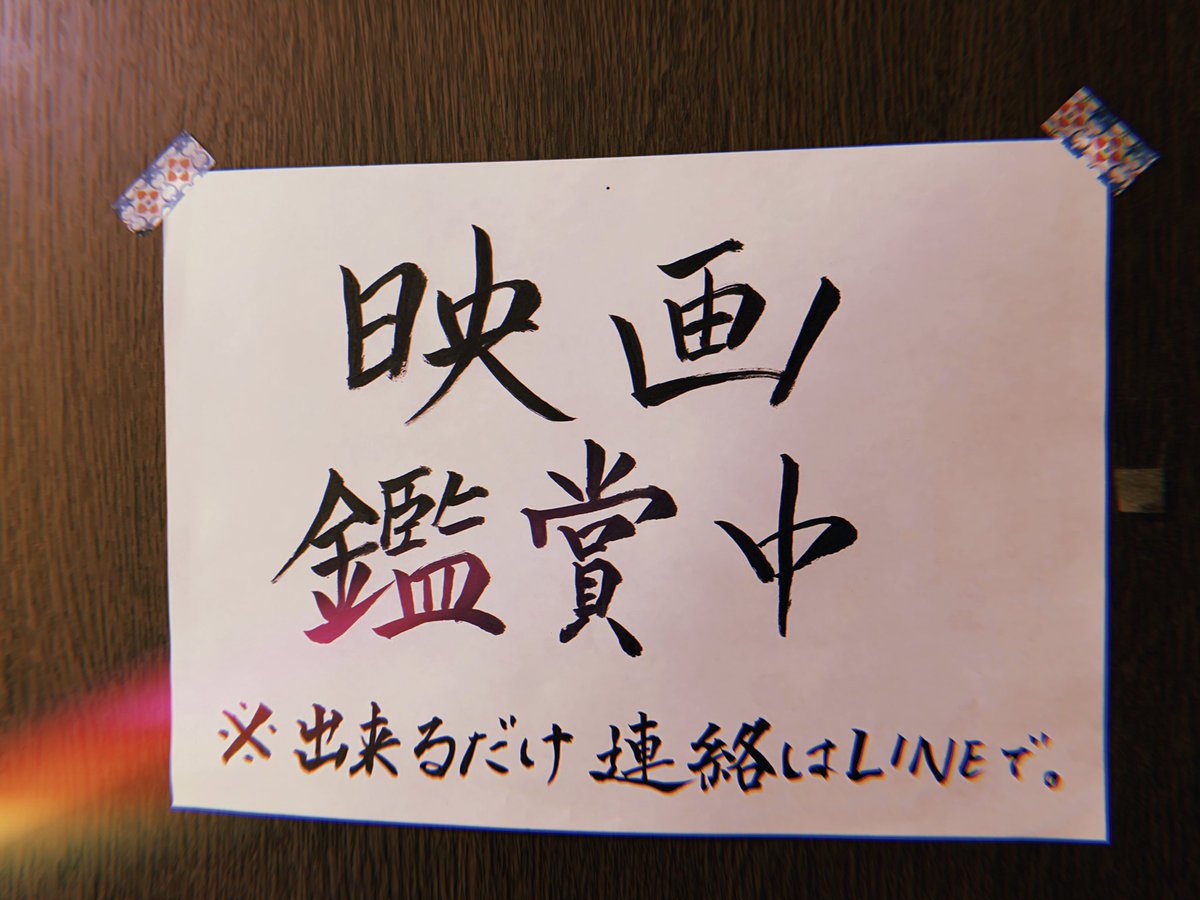 映画
鑑賞中
※出来るだけ連絡はLINEで。